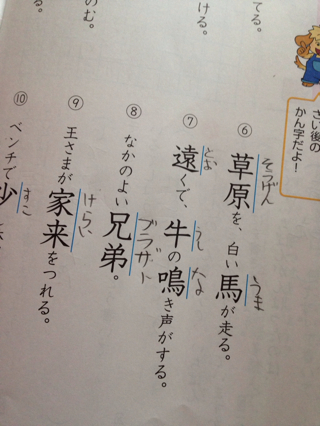 さい後の
かん字だよ!
てる。
ける。
のむ。
る。
⑥ 草原を、白い馬が走る。
そうげん
うま
⑦ 遠くて、牛の鳴き声がする。
とお
うし
な
⑧ なかのよい兄弟。
ブラザー
⑨ 王さまが家来をつれる。
けらい
⑩ ベンチで少し
すこ